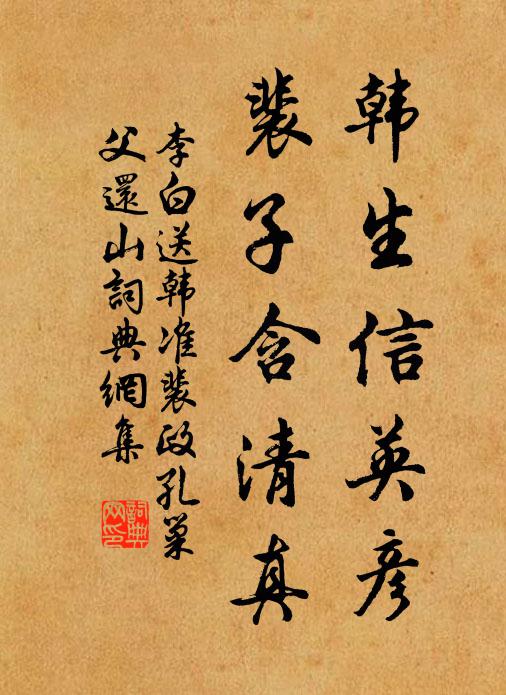 韩生信英彦
裴子含清真
李白送韩准裴政孔巢
父還山詞典網集
詞典
网印